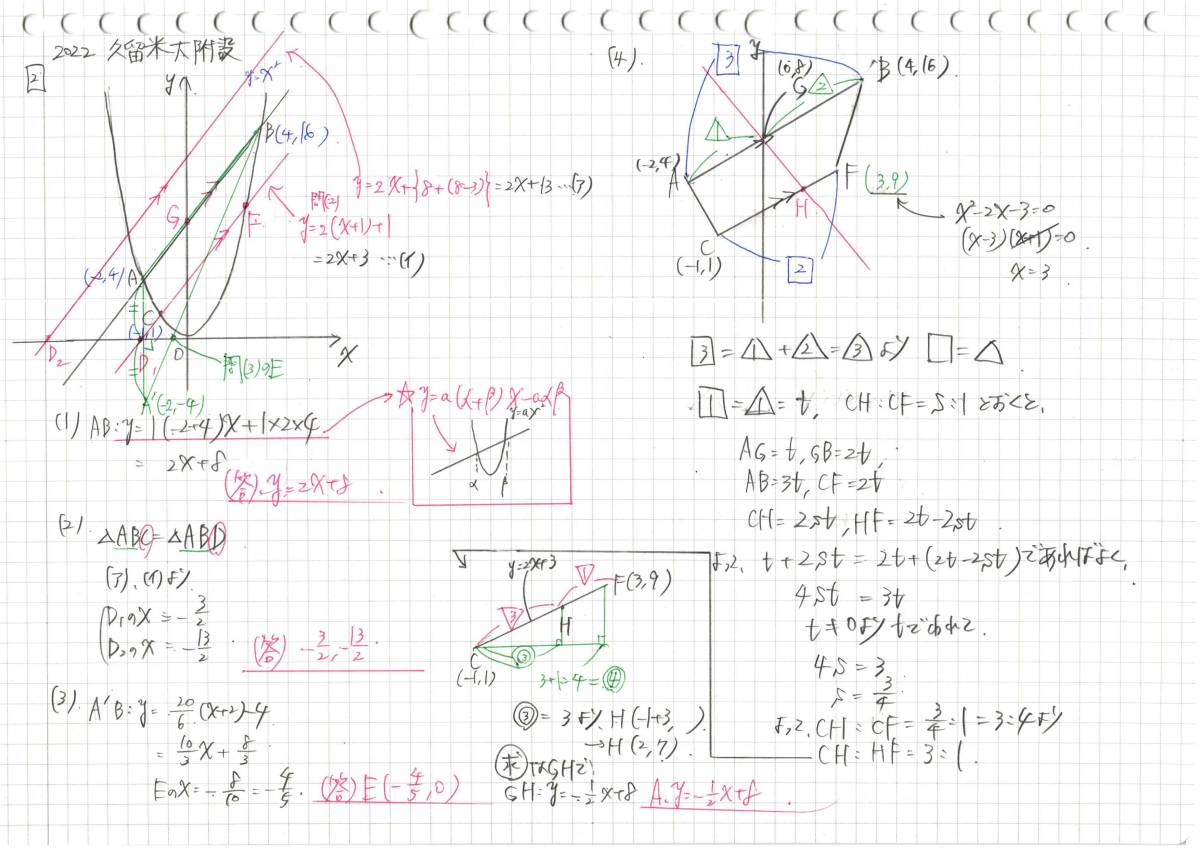 2022 久留米大附設
2
y
y=x²
B(4,16)
G
F
A
(-2,4)
C
(-1,1)
D₂
D₁
O
x
A'(-2,-4)
問(3)のE
y=2x+{8+(8-3)}=2x+13…(ア)
問(2)
y=2(x+1)+1
=2x+3…(イ)
(1) AB:y=1(-2+4)x+1×2×4
=2x+8
(答) y=2x+8.
☆y=a(α+β)x-aαβ
y=ax²
α
β
(2). △ABC=△ABD
(ア)、(イ)より
D₁のx=-3/2
D₂のx=-13/2
(答) -3/2, -13/2.
(3). A'B:y=20/6(x+2)-4
=10/3x+8/3
Eのx=-8/10=-4/5.
(答) E(-4/5,0)
(4).
y
3
(0,8)
G
2
B(4,16)
1
(-2,4)
A
F(3,9)
H
C
(-1,1)
2
x²-2x-3=0
(x-3)(x+1)=0
x=3
3=1+2=3より □=△
1=1=t, CH:CF=s:1とおくと、
AG=t, GB=2t,
AB=3t, CF=2t
CH=2st, HF=2t-2st
よって、t+2st=2t+(2t-2st)であればよく、
4st=3t
t≠0よりtでわって、
4s=3
s=3/4
よって、CH:CF=3/4:1=3:4より
CH:HF=3:1.
y=2x+3
1
F(3,9)
3
H
C
(-1,1)
3
3+1=4=4
3=3より、H(-1+3, )
→H(2,7).
求 はGHで、
GH:y=-1/2x+8
A. y=-1/2x+8.